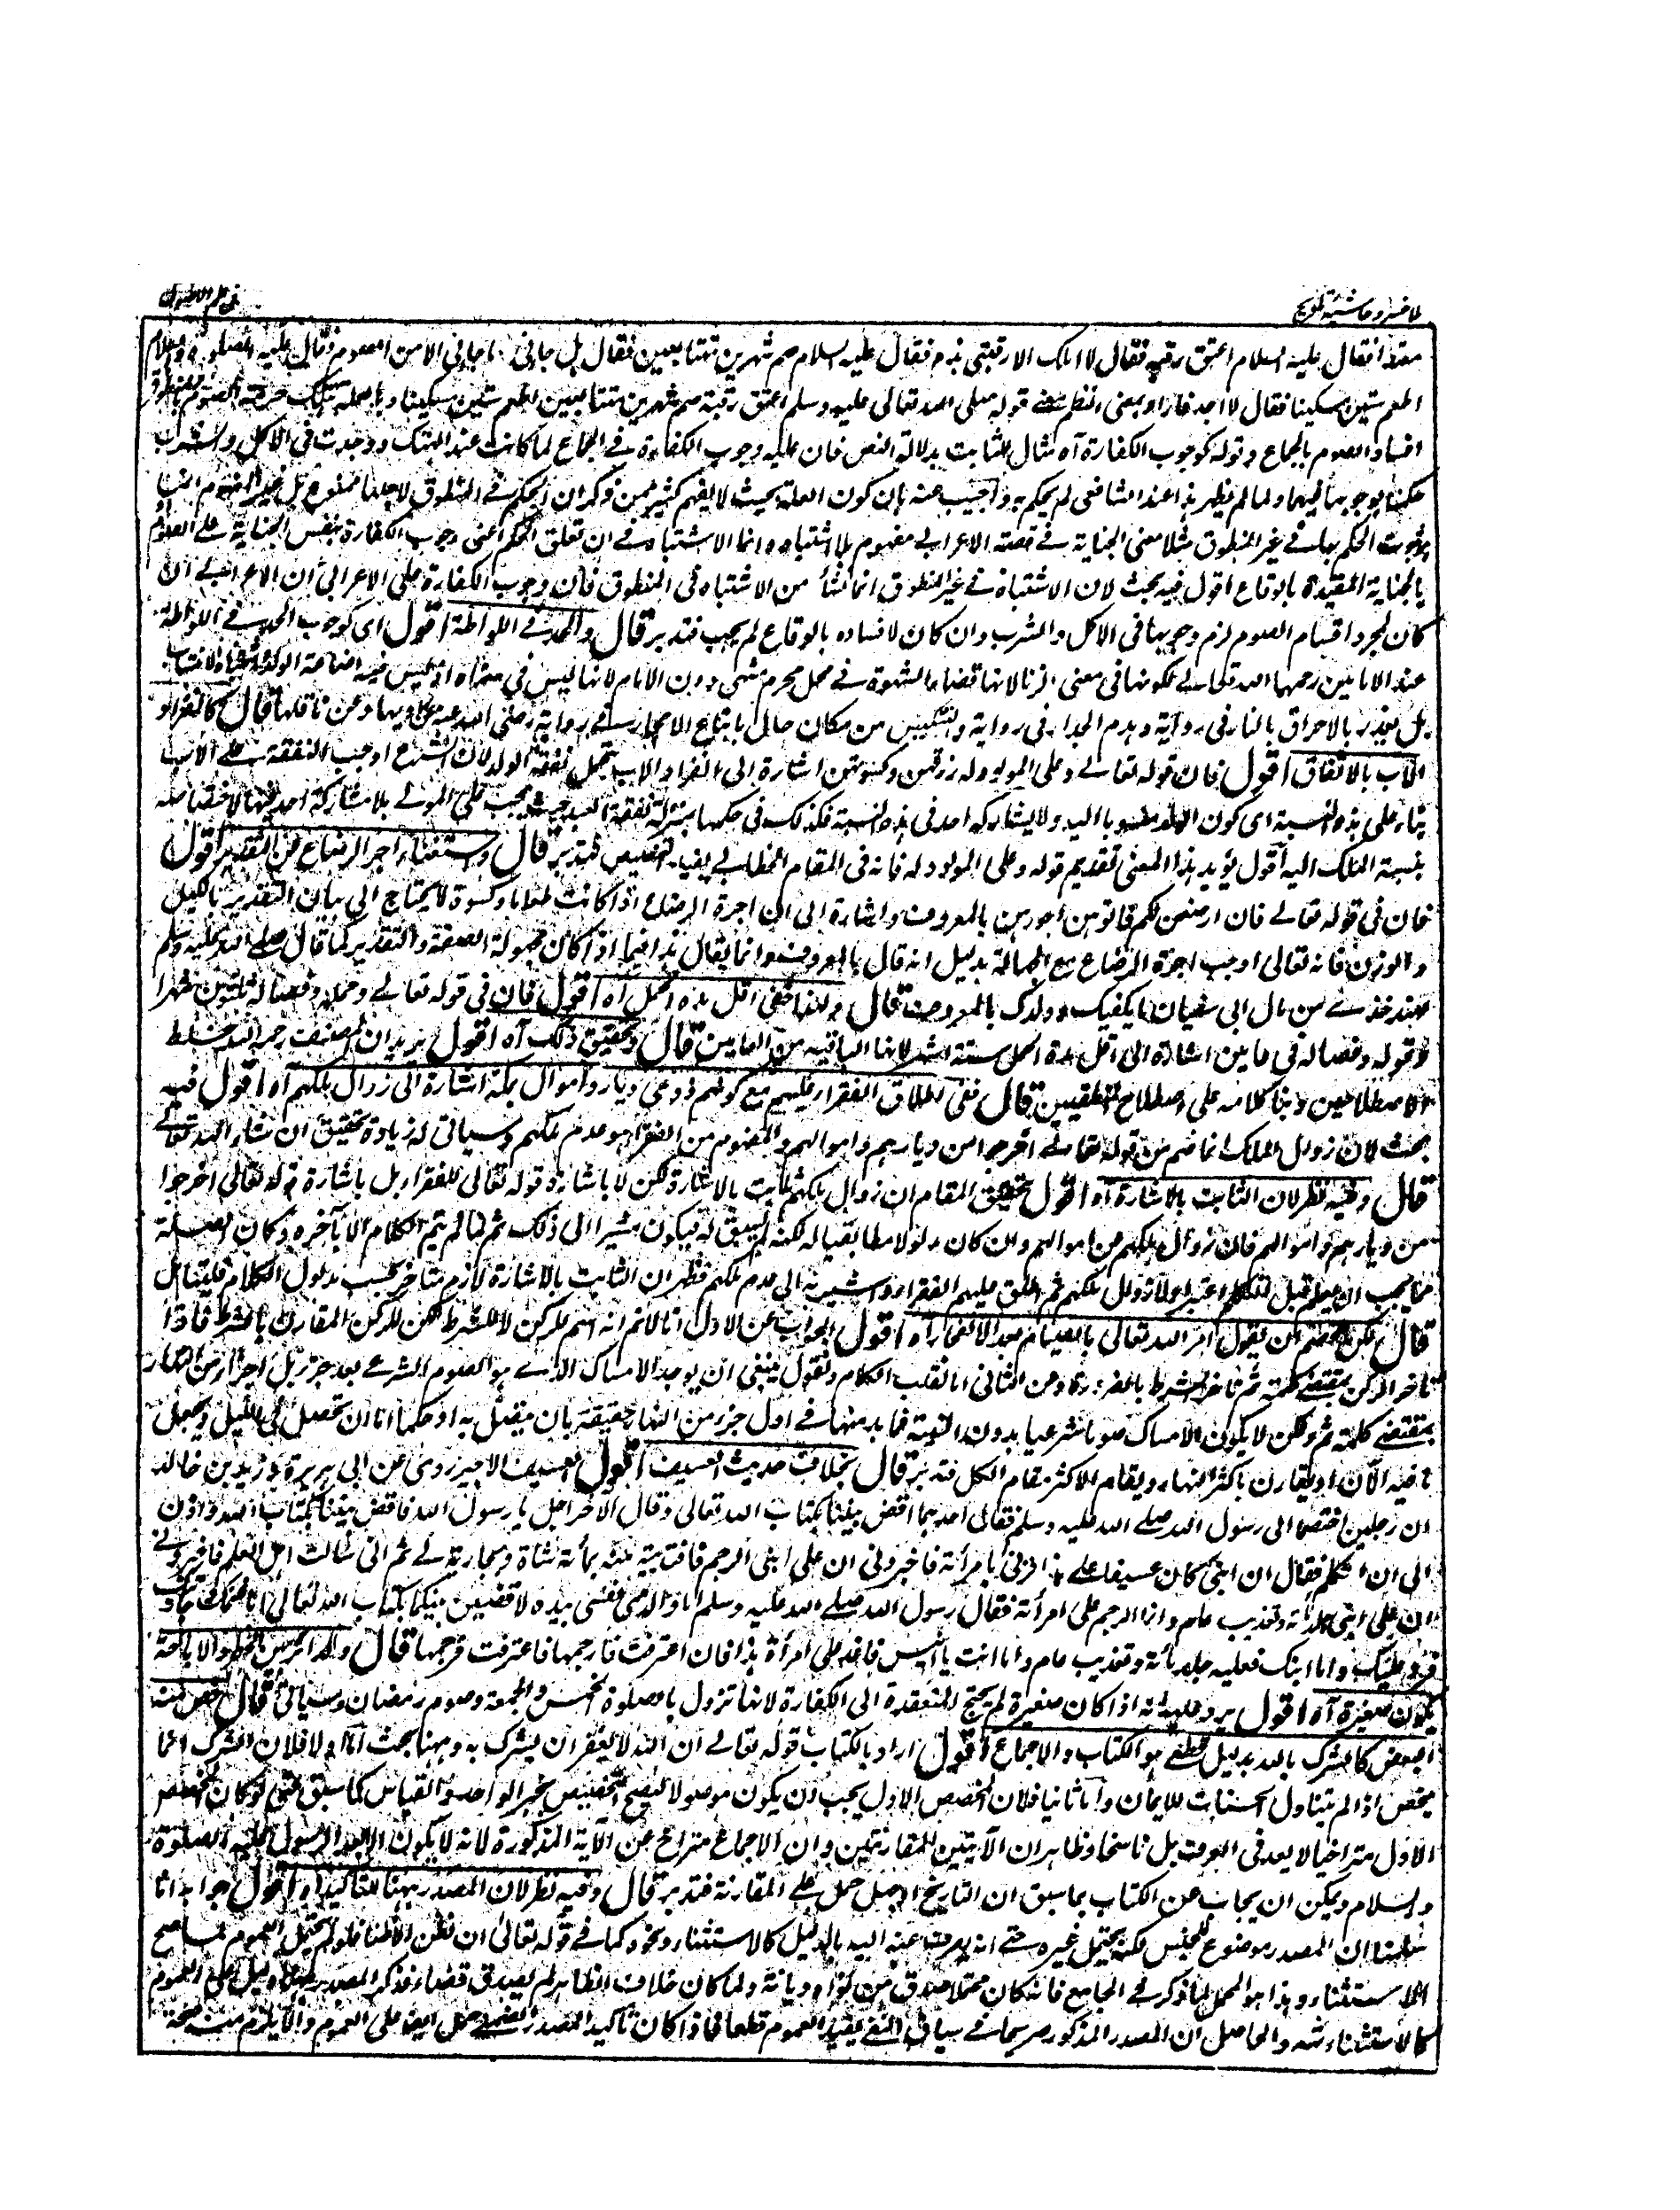 ملا خسرو حاشية تلويح
في علم الاصول
متعمدا فقال عليه السلام اعتق رقبة فقال لا املك الا رقبتي هذه فقال عليه السلام صم شهرين متتابعين فقال هل جاءني ما جاءني الا من الصوم وقال عليه الصلوة والسلام
اطعم ستين مسكينا فقال لا اجد فازا وبمعنى النظم في قوله صلى الله تعالى عليه وسلم اعتق رقبة صم شهرين متتابعين اطعم ستين مسكينا وبا صله تهتك حرمة الصوم
افساد الصوم بالجماع وقوله كوجوب الكفارة آه مثال للثابت بدلالة النص فان علة وجوب الكفارة في الجماع لما كانت عند الهتك ووجدت في الاكل والشرب
حكمنا بوجوبها فيهما ولما لم يظهر هذا عند الشافعي لم يحكم به واجيب عنه بان كون العلة بحيث لا يفهم كثير ممن ذكر ان الحكم في المنطوق لاجلها ممنوع بل غير المفهوم انما
هو ثبوت الحكم بها في غير المنطوق مثلا معنى الجناية في قصة الاعرابي مفهوم بلا اشتباه وانما الاشتباه في ان تعلق الحكم اعني وجوب الكفارة بنفس الجناية على الصوم
بالجناية المقيدة بالوقاع اقول فيه بحث لان الاشتباه في غير المنطوق انما نشأ من الاشتباه في المنطوق فان وجوب الكفارة على الاعرابي ان
كان لمجرد افساد الصوم لزم وجوبها في الاكل والشرب وان كان لافساده بالوقاع لم يجب فتدبر قال والحد في اللواطة اقول اى كوجوب الحد في اللواطة
عند الامامين رحمها الله تعالى لكونها في معنى الزنا لانها قضاء الشهوة في محل محرم مشتهى دون الامام لانها ليس في معناه اذ ليس فيه اضاعة الولد واشتباه الانساب
بل يعزر بالاحراق بالنار في رواية وهدم الجدار في رواية والتنكيس من مكان عال باتباع الاحجار في رواية رضي الله عن راويها وعن ناقلها قال كانفراد
الاب بالاتفاق اقول فان قوله تعالى وعلى المولود له رزقهن وكسوتهن اشارة الى انفراد الاب بتحمل نفقة الولد لان الشرع اوجب النفقة على الاب
بناء على هذه النسبة اى كون الولد منسوبا اليه ولا يشاركه احد في هذه النسبة فكذلك في حكمها بمنزلة نفقة العبد حيث تجب على المولى بلا مشاركة احد فيها لاختصاصه
بنسبة الملك اليه اقول يؤيد هذا المعنى تقديم قوله وعلى المولود له فانه في المقام الخطابي يفيد التخصيص فتدبر قال واستغناء اجر الرضاع عن التقدير اقول
فان في قوله تعالى فان ارضعن لكم فآتوهن اجورهن بالمعروف واشارة الى ان اجرة الرضاع اذا كانت طعاما وكسوة لا يحتاج الى بيان التقدير بالكيل
والوزن فانه تعالى اوجب اجرة الرضاع مع الجهالة بدليل انه قال بالمعروف وانما يقال هذا فيما اذا كان مجهولة الصفة والتقدير كما قال صلى الله عليه وسلم
لهند خذي من مال ابي سفيان ما يكفيك وولدك بالمعروف قال ولهذا خفي اقل مدة الحمل آه اقول فان في قوله تعالى وحمله وفصاله ثلثون شهرا
وقوله وفصاله في عامين اشارة الى اقل مدة الحمل ستة اشهر لانها الباقية من العامين قال وتحقيق ذلك آه اقول يريد ان المصنف رحمه الله خلط
الاصطلاحين وبنا كلامه على اصطلاح المنطقيين قال ففي اطلاق الفقراء عليهم مع كونهم ذوي ديار واموال بمكة اشارة الى زوال ملكهم آه اقول فيه
بحث لان زوال الملك انما فهم من قوله تعالى اخرجوا من ديارهم واموالهم والمفهوم من الفقراء هو عدم ملكهم وسياتي له زيادة تحقيق ان شاء الله تعالى
قال وفيه نظر لان الثابت بالاشارة آه اقول تحقيق المقام ان زوال ملكهم ثابت بالاشارة لكن لا باشارة قوله تعالى للفقراء بل باشارة قوله تعالى اخرجوا
من ديارهم واموالهم فان زوال ملكهم من اموالهم وان كان مدلولا مطابقيا له لكنه لم يسق له فيكون مشيرا الى ذلك ثم لما لم يتم الكلام الا بآخره وكان الصلة
مما يجب ان يعلم قبل التكلم اعتبر اولا زوال ملكهم ثم اطلق عليهم الفقراء واشير به الى عدم ملكهم فظهر ان الثابت بالاشارة لازم متاخر بحسب مدلول الكلام فليتامل
قال لكن للخصم ان يقول امر الله تعالى بالصيام بعد الانفجار آه اقول الجواب عن الاول انا لا نم انه اسم للركن لا للشرط لكن للركن المقارن بالشرط فاذا
تاخر الركن بمقتضى كلمة ثم تاخر الشرط بالضرورة وعن الثاني انا نقلب الكلام ونقول ينبغي ان يوجد الامساك الذي هو الصوم الشرعي بعد جزء بل اجزاء من النهار
بمقتضى كلمة ثم ولكن لا يكون الامساك صوما شرعيا بدون النية فما بد منها في اول جزء من النهار حقيقة بان يتصل به او حكما انا ان تحصل في الليل ويجعل
باقيه الآن او يقارن باكثر النهار ويقام الاكثر مقام الكل فتدبر قال بخلاف حديث العسيف اقول العسيف الاجير روى عن ابى هريرة وزيد بن خالد
ان رجلين اختصما الى رسول الله صلى الله عليه وسلم فقال احدهما اقض بيننا بكتاب الله تعالى وقال الآخر اجل يا رسول الله فاقض بيننا بكتاب الله واذن
الى ان اتكلم فقال ان ابني كان عسيفا على هذا فزنى بامرأته فاخبروني ان على ابني الرجم فافتديته منه بمأة شاة وبجارية لي ثم اني سألت اهل العلم فاخبروني
ان على ابني جلد مأة وتغريب عام وانما الرجم على امرأته فقال رسول الله صلى الله عليه وسلم اما والذي نفسي بيده لاقضين بينكما بكتاب الله تعالى اما غنمك وجاريتك
فرد عليك واما ابنك فعليه جلد مأة وتغريب عام واما انت يا انيس فاغد على امرأة هذا فان اعترفت فارجمها فاعترفت فرجمها قال والدائر بين الحظر والاباحة
يكون صغيرة آه اقول يرد عليه انه اذا كان صغيرة لم يحتج المنعقدة الى الكفارة لانها تزول بالصلوة الخمس والجمعة وصوم رمضان وسياتى قال خص منه
البعض كالشرك بالله بدليل قطعي هو الكتاب والاجماع اقول اراد بالكتاب قوله تعالى ان الله لا يغفر ان يشرك به وههنا بحث اما اولا فلان الشرك انما
يخص اذا لم يتناول الحسنات للايمان واما ثانيا فلان المخصص الاول يجب ان يكون موصولا ليصح التخصيص بخبر الواحد والقياس كما سبق حتى لو كان المخصص
الاول متراخيا لا يعد في العرف بل ناسخا وظاهر ان الآيتين للمقارنتين وان الاجماع متراخ عن الآية المذكورة لانه لا يكون الا بعد الرسول عليه الصلوة
والسلام ويمكن ان يجاب عن الكتاب بما سبق ان التاريخ اذا جهل حمل على المقارنة فتدبر قال وفيه نظر لان المصدر ههنا للتاكيد آه اقول جوابه انا
سلمنا ان المصدر موضوع للجنس لكنه يحتمل غيره حتى انه يصرف عنه اليه بالدليل كالاستثناء ونحوه كما في قوله تعالى ان نظن الا ظنا فلو لم يحتمل العموم لما صح
الاستثناء وهذا هو المحمل لما ذكر في الجامع فانه كان محتملا صدق من نواه ديانة ولما كان خلاف الظاهر لم يصدق قضاء فذكر المصدر دليل على العموم
كالاستثناء منه والحاصل ان المصدر المذكور صريحا في سياق النفي يفيد العموم قطعا فاذا كان تاكيد المصدر الضمني حمل ايضا على العموم والا يلزم من صحة